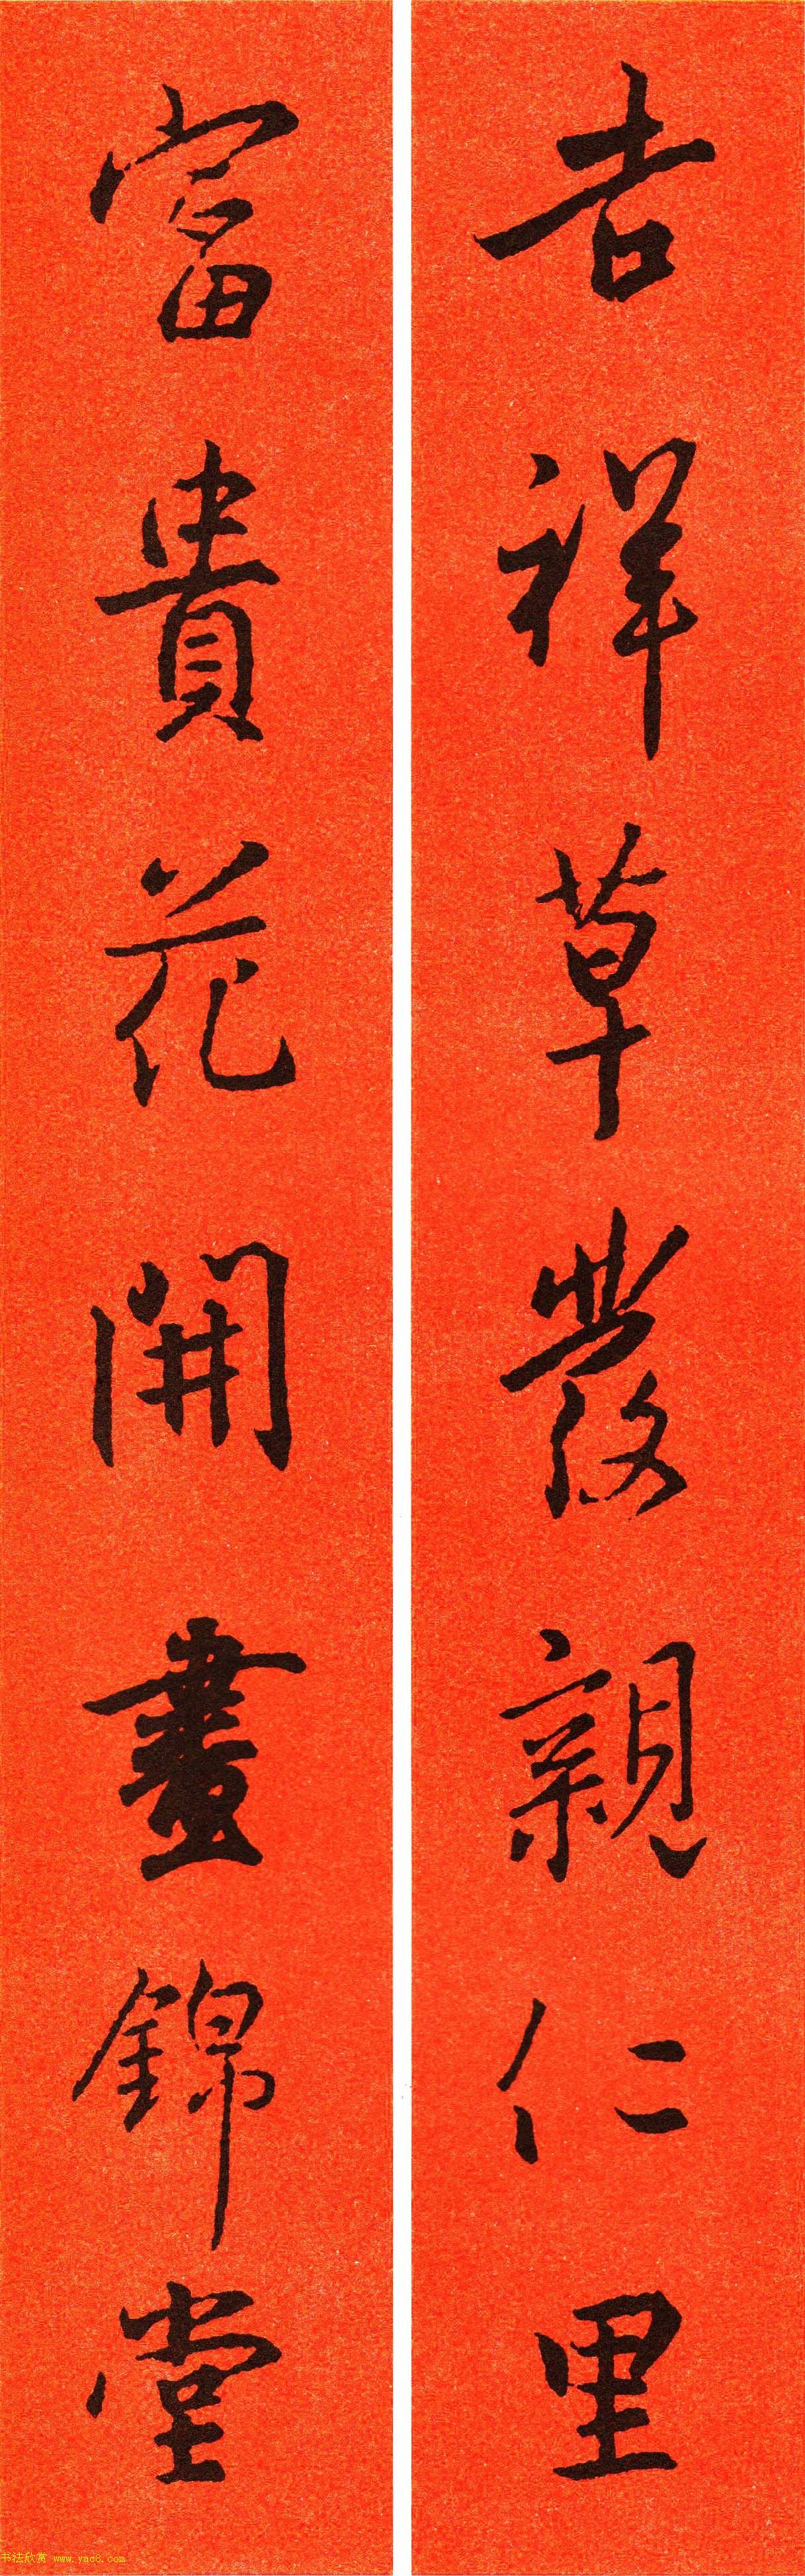 吉祥草發親仁里
富貴花開晝錦堂
书法欣赏 www.yac8.com